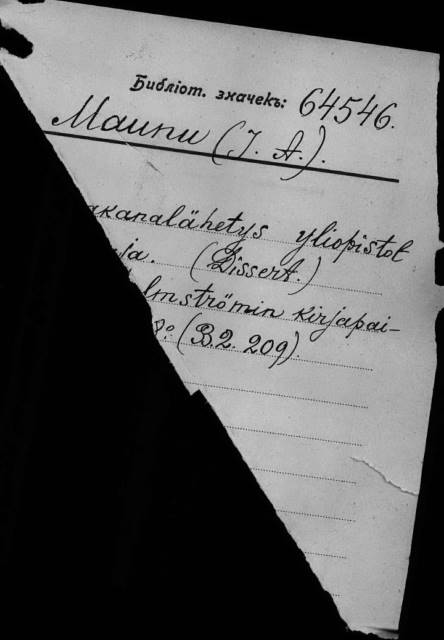 Библіот. значекъ: 64546.
Maunu (J. A.).
akanalähetys yliopistol
ja. (Dissert.)
lmströmin kirjapai-
8:o (B. 2. 209).